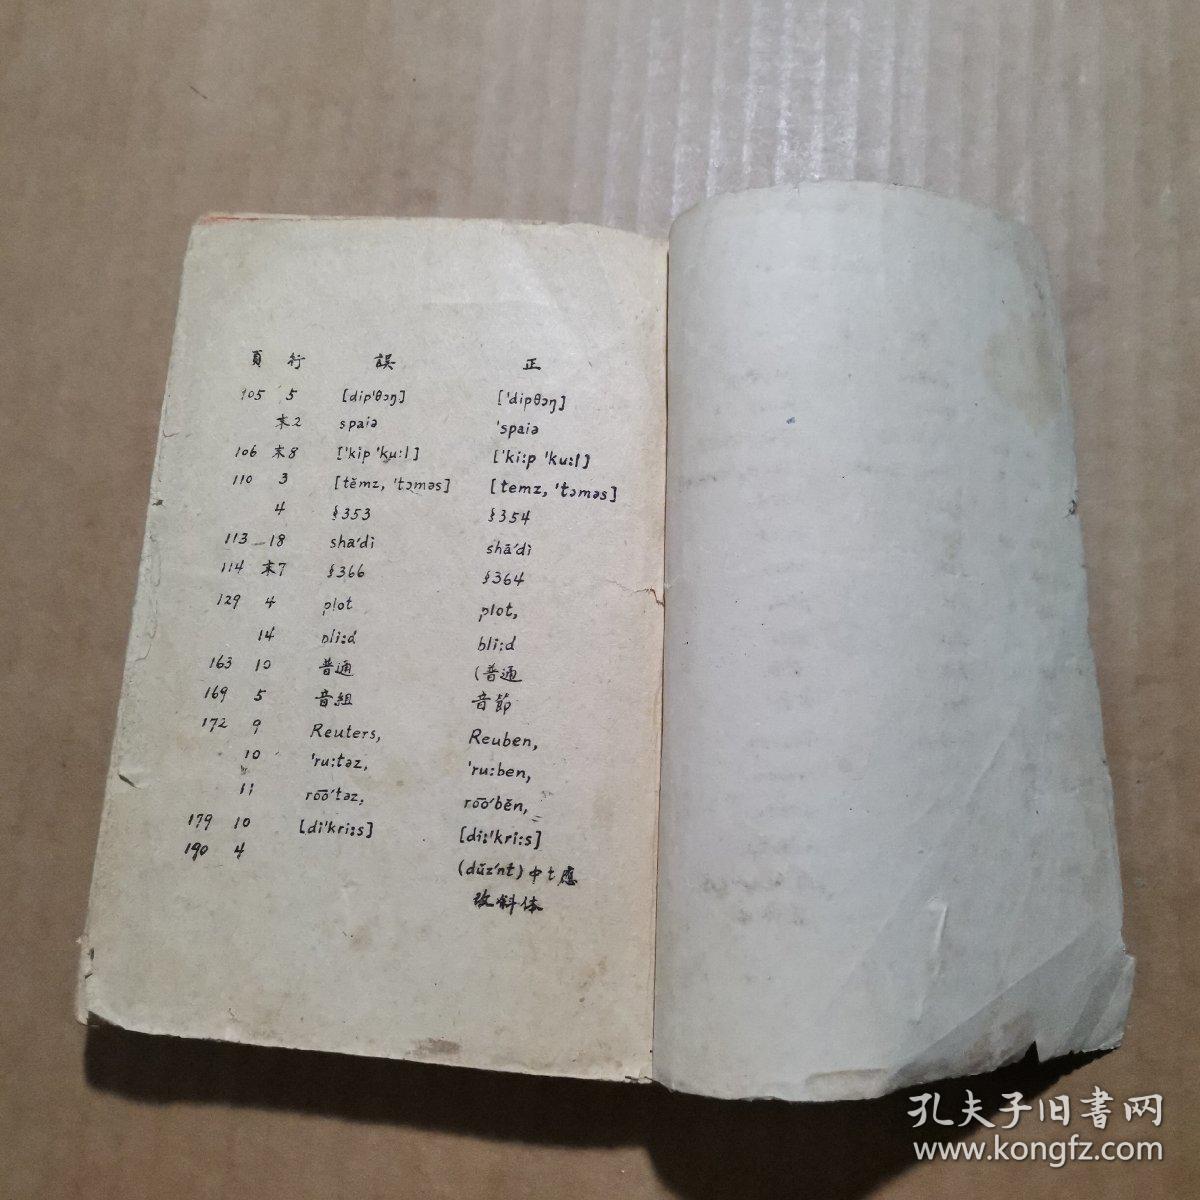 頁 行 誤 正
105 5 [dip'θɔŋ] ['dipθɔŋ]
末2 spaiə 'spaiə
106 末8 ['kip 'ku:l] ['ki:p 'ku:l]
110 3 [tĕmz, 'tɔməs] [temz, 'tɔməs]
4 §353 §354
113 18 sha'di shā'di
114 末7 §366 §364
129 4 plot plot,
14 pli:d bli:d
163 10 普通 (普通
169 5 音組 音節
172 9 Reuters, Reuben,
10 'ru:təz, 'ru:ben,
11 rōō'təz, rōō'bĕn,
179 10 [di'kri:s] [di:'kri:s]
190 4 (dŭz'nt) 中 t 應
改斜体
孔夫子旧書网
www.kongfz.com